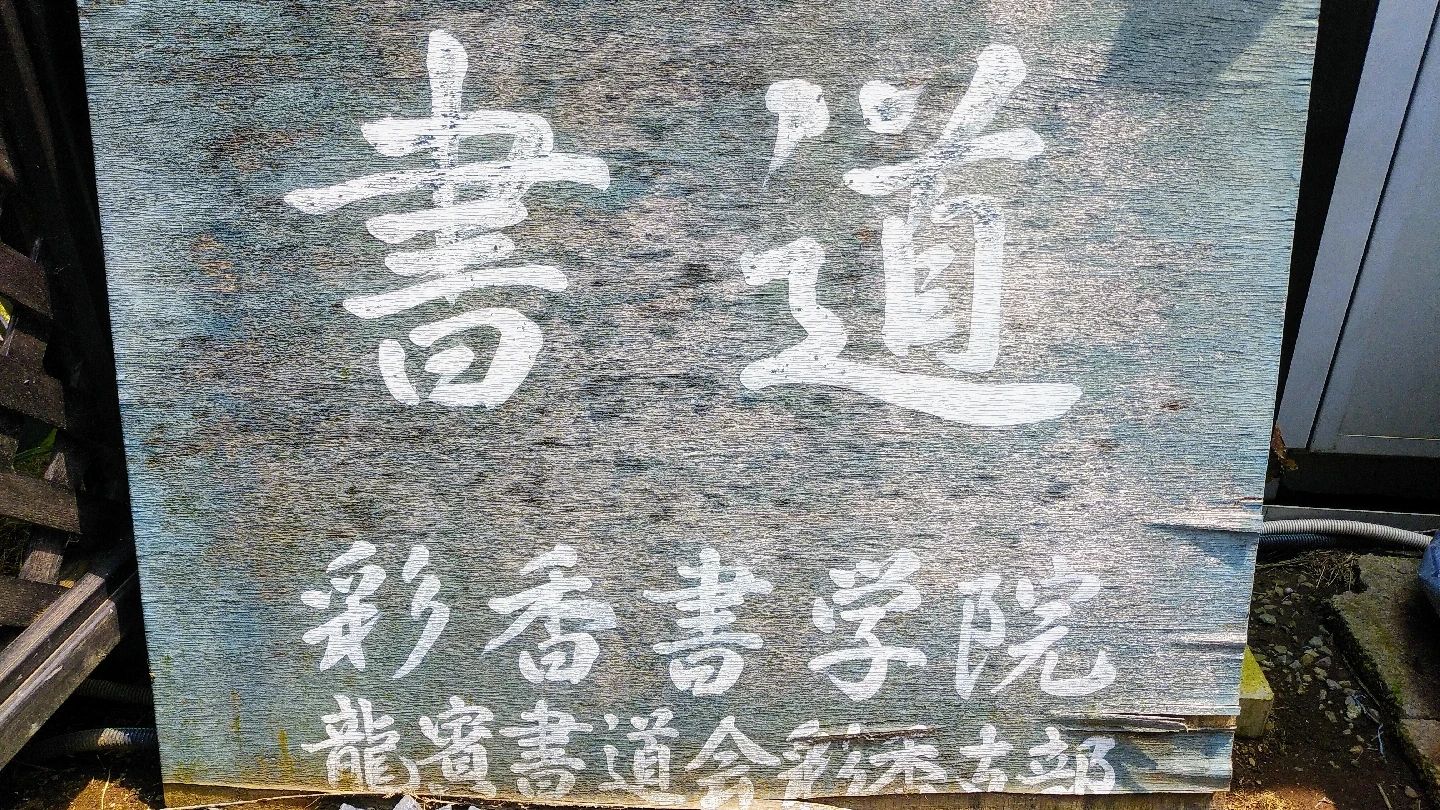 書道
彩香書学院
龍濱書道会彩香支部